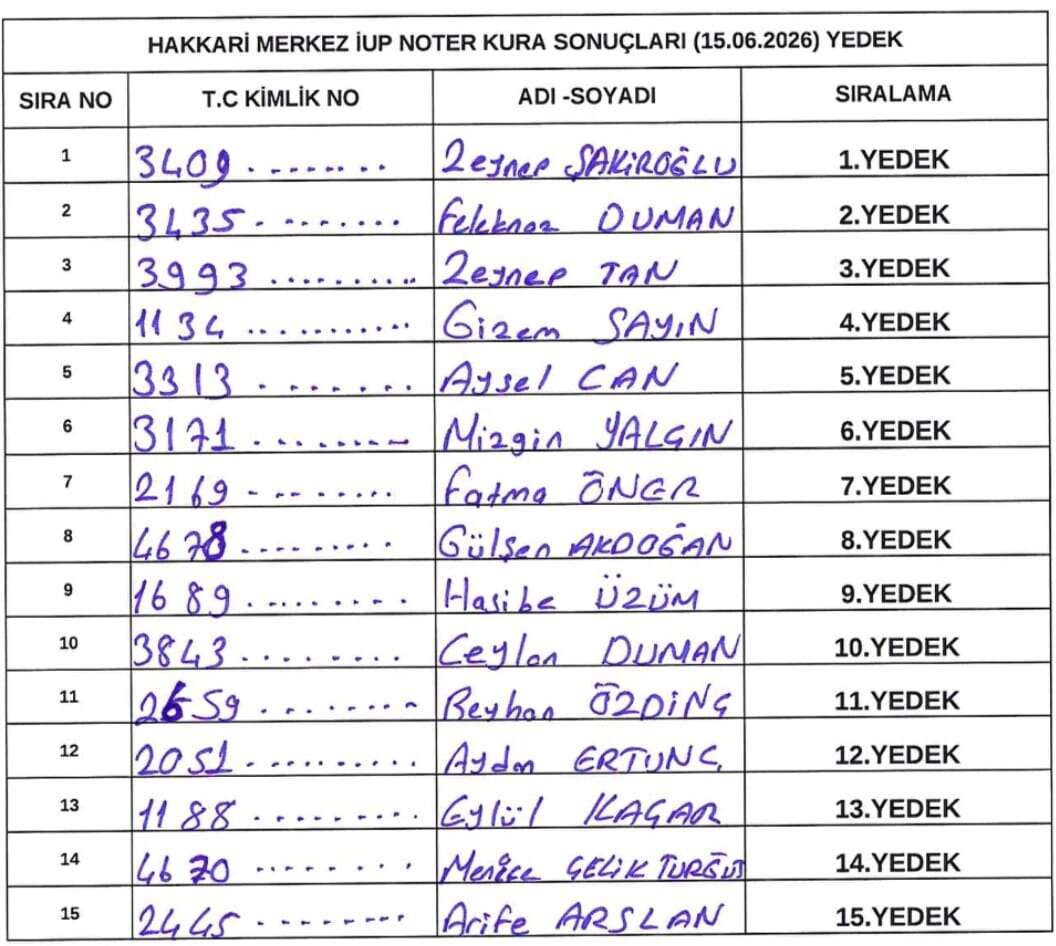 HAKKARİ MERKEZ İUP NOTER KURA SONUÇLARI (15.06.2026) YEDEK
SIRA NO T.C KİMLİK NO ADI -SOYADI SIRALAMA
1 3409 ......... Zeynep ŞAKİROĞLU 1.YEDEK
2 3435 ........ Feleknaz DUMAN 2.YEDEK
3 3993 .......... Zeynep TAN 3.YEDEK
4 1134 ........... Gizem SAYIN 4.YEDEK
5 3313 ....... Aysel CAN 5.YEDEK
6 3171 ........ Mizgin YALÇIN 6.YEDEK
7 2169 ........ Fatma ÖNER 7.YEDEK
8 4678 ......... Gülşen AKDOĞAN 8.YEDEK
9 1689 ......... Hasibe ÜZÜM 9.YEDEK
10 3843 ........ Ceylan DUMAN 10.YEDEK
11 2659 ........ Reyhan ÖZDİNÇ 11.YEDEK
12 2051 .......... Aydan ERTUNÇ 12.YEDEK
13 1188 ......... Eylül KAÇAR 13.YEDEK
14 4670 ........ ÇELİK TURĞUT 14.YEDEK
15 2445 ......... Arife ARSLAN 15.YEDEK